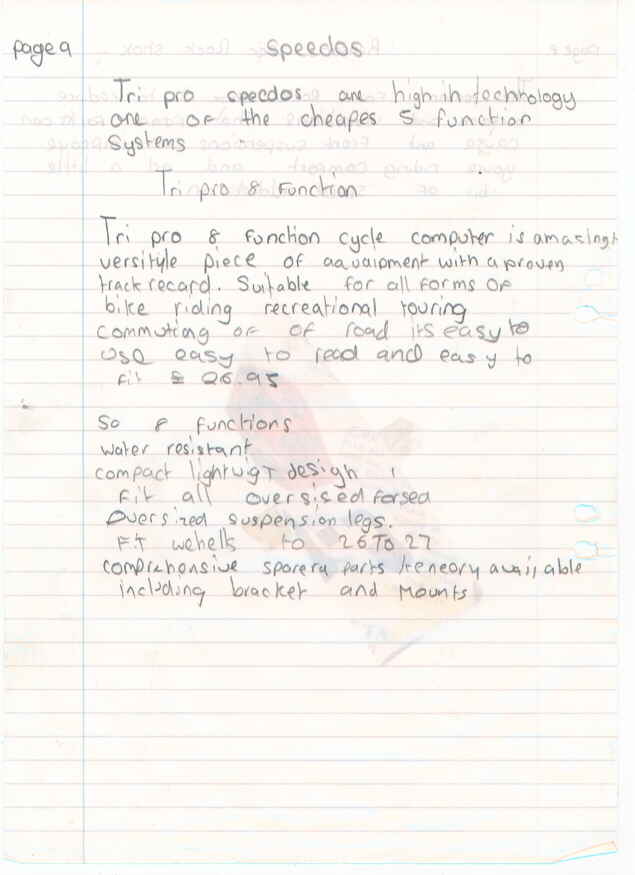 page 9
Speedos
Tri pro speedos are high in technology
one of the cheapes 5 function
Systems
Tri pro 8 Function
Tri pro 8 function cycle computer is amazingt
versityle piece of aquaipment with a proven
track record. Suitable for all forms of
bike riding recreational touring
commuting or of road its easy to
use easy to read and easy to
fit £ 26.95
So 8 functions
water resistant
compact lightwigt desigh
Fit all oversised forsed
Oversized suspension legs.
Fit wehells to 26 TO 27
comprehensive sparery parts available
including bracket and Mounts